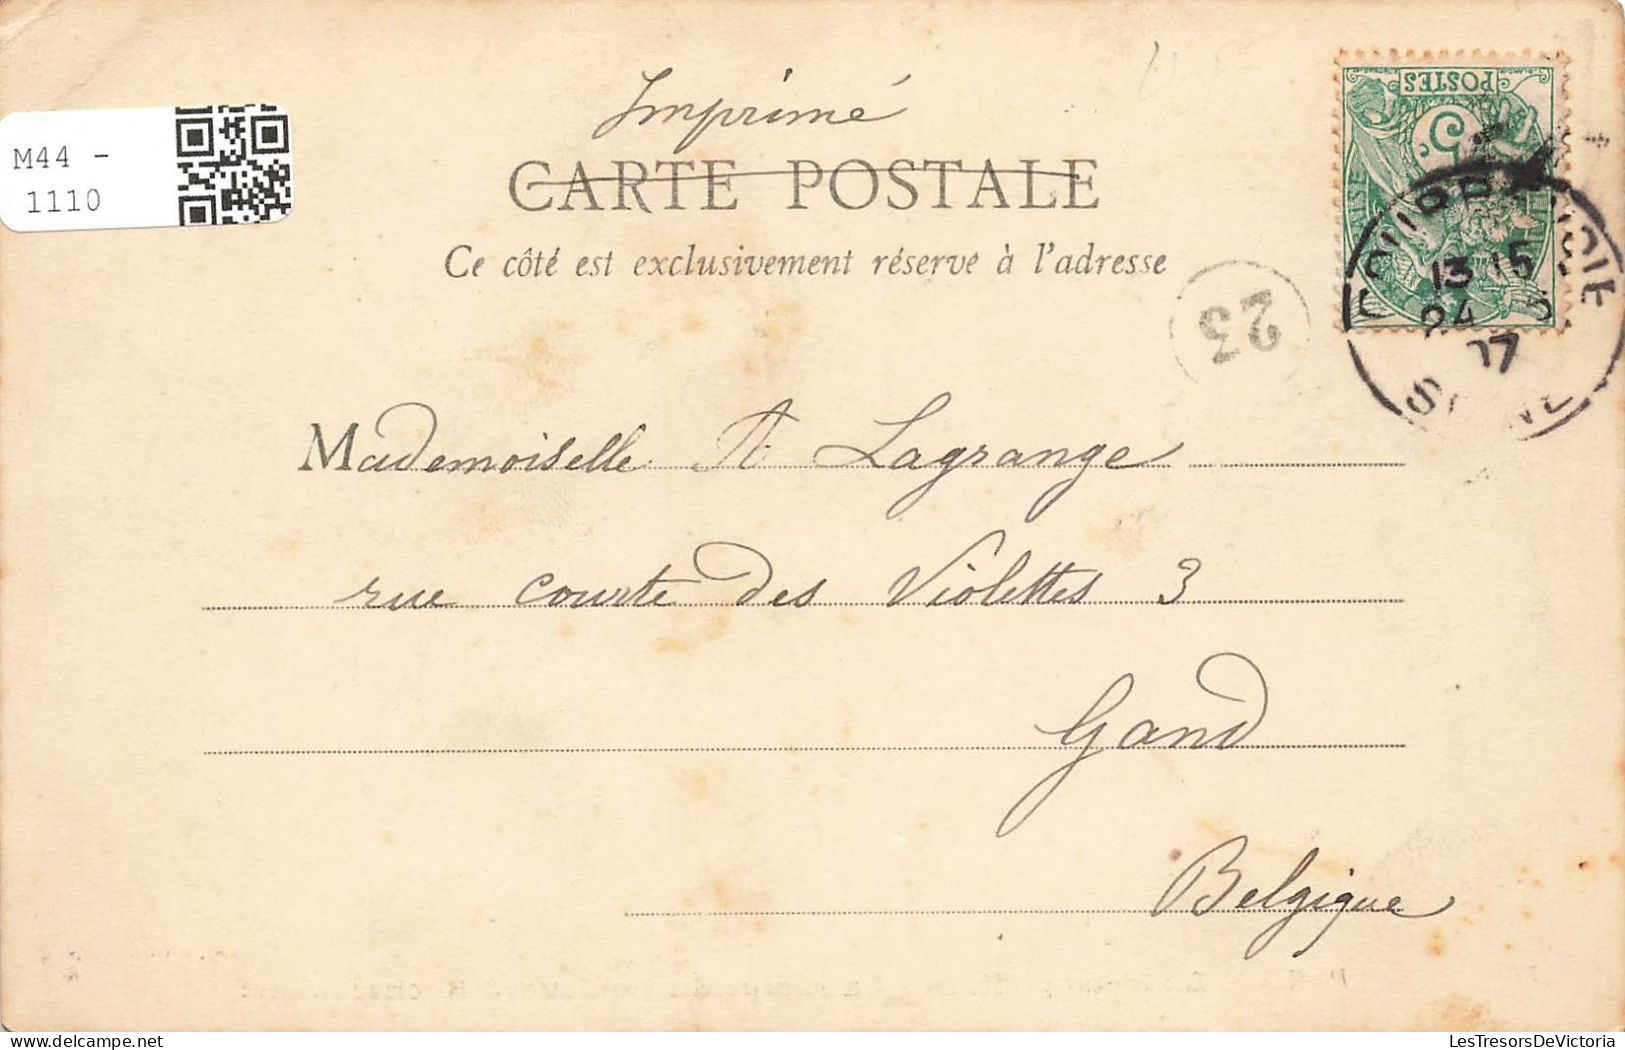 Imprimé
M44 -
1110
CARTE POSTALE
Ce côté est exclusivement réservé à l'adresse
POSTES
5
13 15
24 5
23
Mademoiselle A Lagrange
rue courte des Violettes 3
Gand
Belgique
LesTresorsDeVictoria